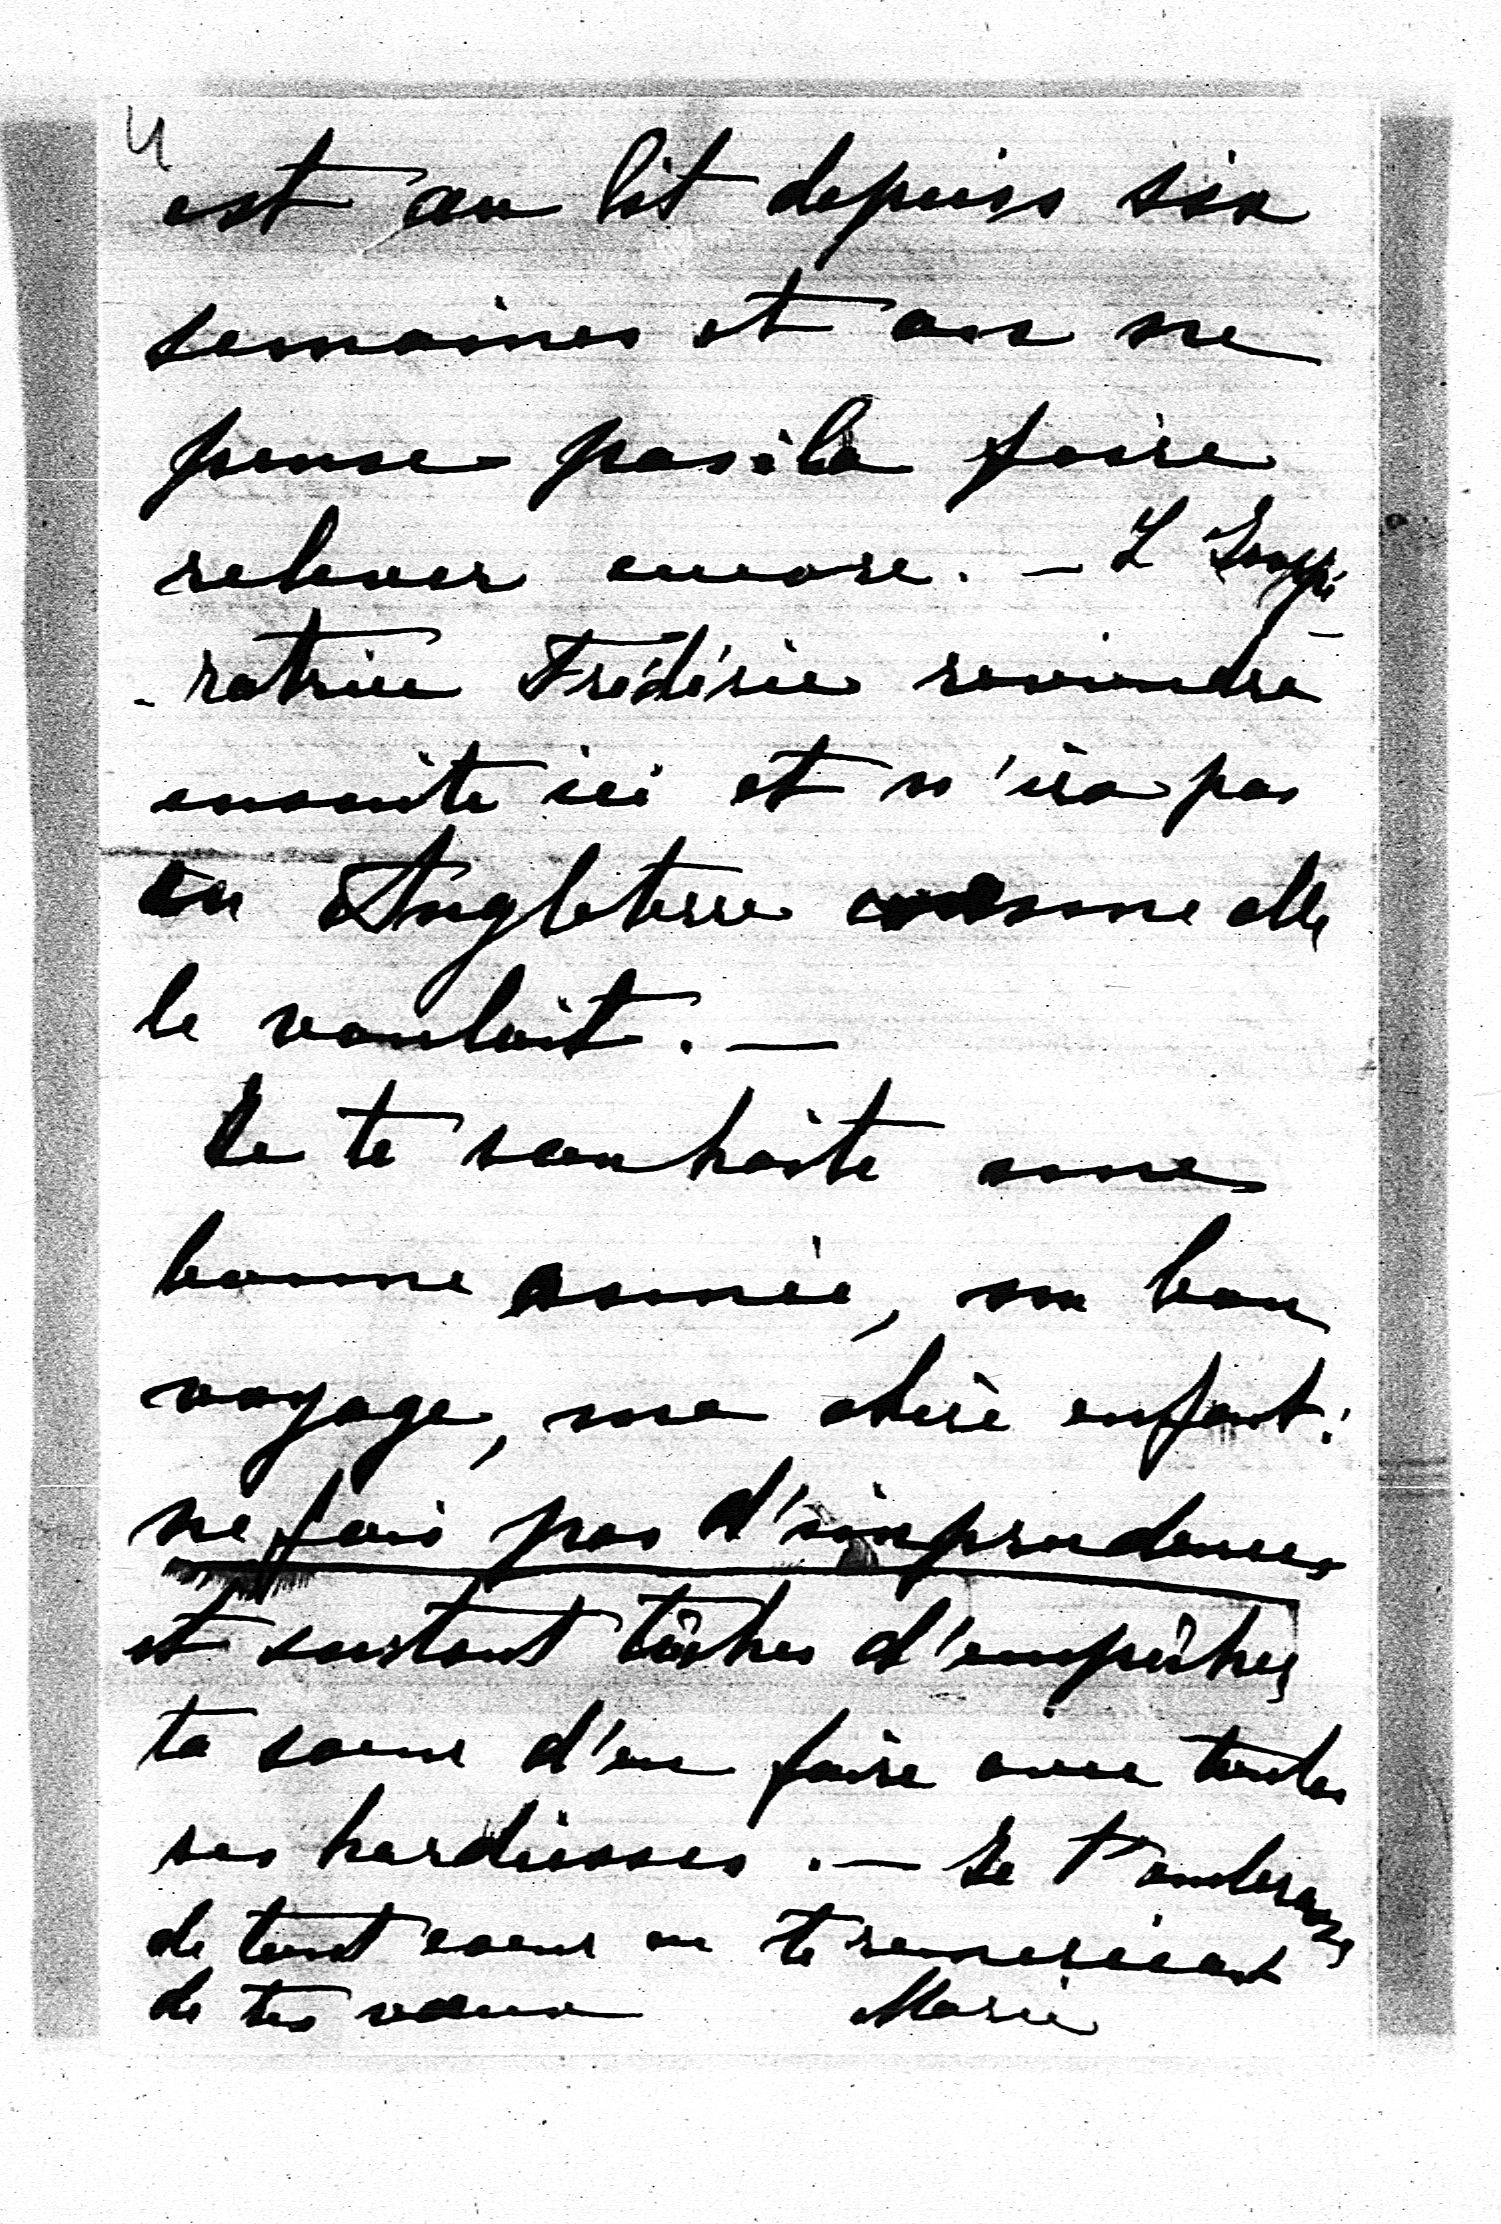 4
est au lit depuis six
semaines et on ne
pense pas à la faire
relever encore. — L'Impé
-ratrice Frédéric reviendra
ensuite ici et n'ira pas
en Angleterre comme elle
le voulait. —
Je te souhaite une
bonne année, un bon
voyage, ma chère enfant:
ne fais pas d'imprudences
et surtout tâches d'empêcher
ta soeur d'en faire avec toutes
ses hardiesses. — Je t'embrasse
de tout coeur en te remerciant
de tes voeux Marie